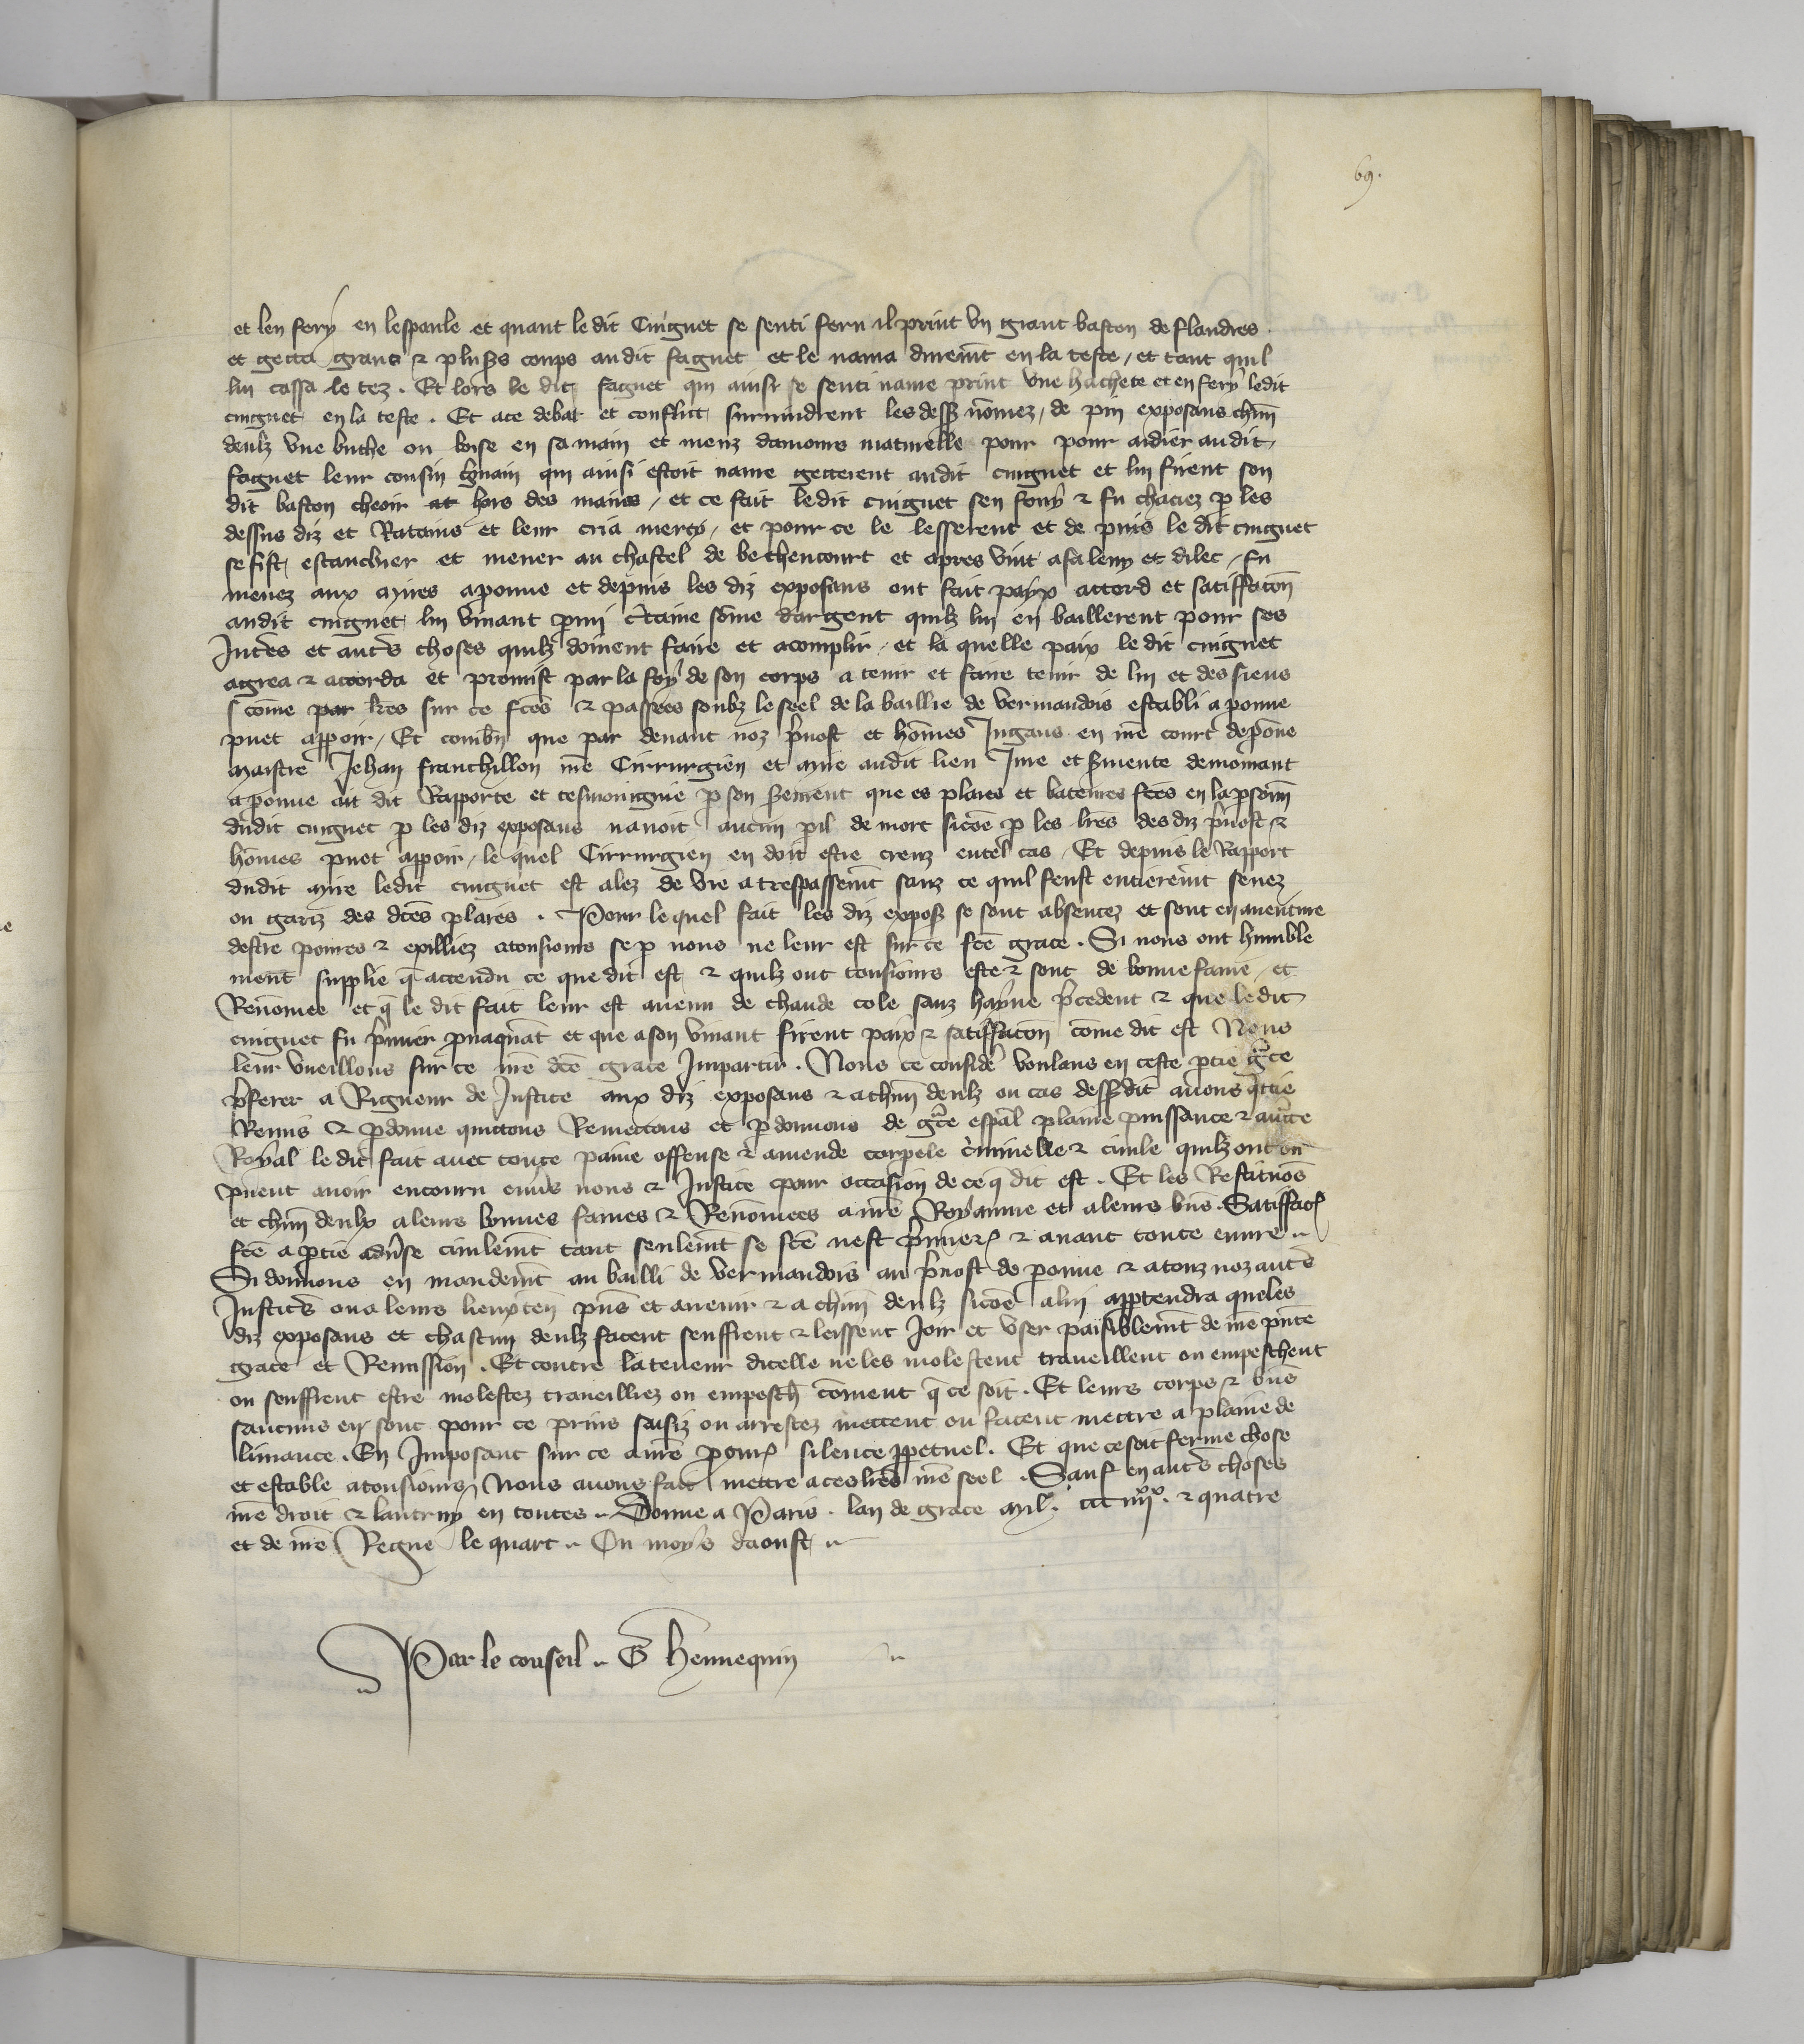 69.
et len fery en lespaule et quant ledit Cuignet se senti feru il print un grant baston de flandres
et getta grans & plus̃s coups audit faguet et le navra durem̃t en la teste / et tant quil
lui cassa le tez . Et lors le dit faguet qui ainsi se senti navre print une hachete et en fery ledit
cuignet en la teste . Et a ce debat et conflict survindrent les dess̃ nõmez / de p̃ni exposans ch̃un
deulz une buche ou boise en sa main et meuz damours naturelle pour pour aidier audit
faguet leur cousin g̃main qui ainsi estoit navre getterent audit cuignet et lui firent son
dit baston cheoir hors des mains / et ce fait ledit cuignet sen fouy & fu chaciez p les
dessus diz et Ratains et leur cria mercy / et pour ce le lesserent et de puis le dit cuignet
se fist estanchier et mener au chastel de bethencourt et apres vint a saleny et dilec / fu
menez aux myres a peronne et depuis les diz exposans ont fait paix accord et satiffacõn
audit cuignet lui vivant p̃mi c̃taine sõme dargent quilz lui en baillerent pour ses
Inter̃s et autr̃s choses quilz doivent faire et acomplir / et la quelle paix le dit cuignet
agrea & accorda et promist par la foy de son corps a tenir et faire tenir de lui et des siens
sicõme par lr̃es sur ce fc̃es & passees soubz le seel de la baillie de vermandois establi a peronne
puet apparoir / Et combñ que par devant noz p̃vost et hõmes Jugans en nr̃e court de per̃ne
maistre Jehan franchillon nr̃e Cirrurgien et mire audit lieu Jure et s̃mente demorant
a peronne ait dit Rapporte et tesmoingnie p son s̃ement que es plaies et bateures fc̃es en la p̃sonñ
dudit cuignet p les diz exposans navoit aucun p̃il de mort sicõe p les lr̃es des diz p̃vost &
hõmes puet apparoir / le quel Cirrurgien en doit estre creuz en tel cas / Et depuis le Rapport
dudit mire ledit cuignet est alez de vie a trespassem̃t sanz ce quil feust entierem̃t senez
ou gariz des dc̃es plaies . Pour le quel fait les diz expos̃ se sont absentez et sont en aventure
destre povres & exilliez a tousjours se p nous ne leur est sur ce fc̃e grace . Si nous ont humble
ment supplie q̃ attendu ce que dit est & quilz ont tousjours este & sont de bonne fame / et
Renõmee et q̃ le dit fait leur est avenu de chaude cole sanz hayne p̃cedent & que ledit
cuignet fu p̃mier p̃vaquãt et que a son vivant firent paix & satiffacõn cõme dit est Nous
leur vueillons sur ce nr̃e dc̃e grace Impartir . Nous ce considẽ voulans en ceste p̃tie gr̃ce
p̃ferer a Rigueur de Justice aux diz exposans & a ch̃un deulz ou cas dess̃dit avons q̃ttie
Remis & p̃donne quictons Remettons et p̃donnons de gr̃ce esp̃al plaine puissance & auct̃e
Royal le dit fait avec toute paine offense & amende corpele c̃minelle & civile quilz ont ou
puent avoir encouru env̾s nous & Justice pour occasion de ce q̃ dit est . Et les Restituõs
et ch̃un deulx a leurs bonnes fames & Renõmees a nr̃e Royaume et a leurs biẽs . Satiffac̃
fc̃e a p̃tie adv̾se civilem̃t tant seulem̃t se fc̃e nest p̃mier̃ & avant toute euvre ..
Si donnons en mandem̃t au bailli de vermandois au p̃vost de peronne & a touz noz autr̃s
Justic̃s ou a leurs lieuxteñ p̃ns et avenir & a ch̃un deulz sicõe a lui app̃tendra que les
diz exposans et chascun deulz facent seuffrent & leissent Joir et user paisiblem̃t de nr̃e p̃nte
grace et Remission . Et contre la teneur dicelle ne les molestent traveillent ou empeschent
ou seuffrent estre molestez traveilliez ou empesch̃ cõment q̃ ce soit . Et leurs corps & biẽs
saucuns en sont pour ce prins saisiz ou arrestez mettent ou facent mettre a plaine de
livrance . En Imposant sur ce a nr̃e p̃cur̃ silence p̃petuel . Et que ce soit ferme chose
et estable a tousjours Nous avons fait mettre a ces lr̃es nr̃e seel . Sauf en autr̃s choses
nr̃e droit & lautruy en toutes .. Donne a Paris . lan de grace mil . ccc iiiixx . & quatre
et de nr̃e Regne le quart .. Ou moys daoust ..
Par le conseil .. G Hennequin